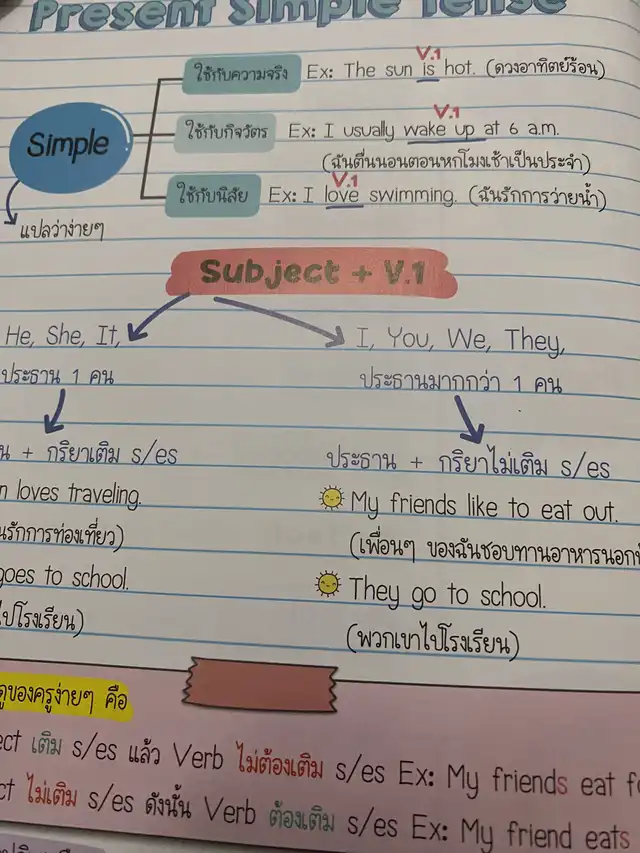 Present Simple Tense
V.1
ใช้กับความจริง Ex: The sun is hot. (ดวงอาทิตย์ร้อน)
V.1
ใช้กับกิจวัตร Ex: I usually wake up at 6 a.m.
Simple
(ฉันตื่นนอนตอนหกโมงเช้าเป็นประจำ)
V.1
ใช้กับนิสัย Ex: I love swimming. (ฉันรักการว่ายน้ำ)
แปลว่าง่ายๆ
Subject + V.1
He, She, It, I, You, We, They,
ประธาน 1 คน ประธานมากกว่า 1 คน
+ กริยาเติม s/es ประธาน + กริยาไม่เติม s/es
loves traveling. My friends like to eat out.
รักการท่องเที่ยว) (เพื่อนๆ ของฉันชอบทานอาหารนอก
goes to school. They go to school.
ไปโรงเรียน) (พวกเขาไปโรงเรียน)
ของครูง่ายๆ คือ
เติม s/es แล้ว Verb ไม่ต้องเติม s/es Ex: My friends eat
ไม่เติม s/es ดังนั้น Verb ต้องเติม s/es Ex: My friend eats